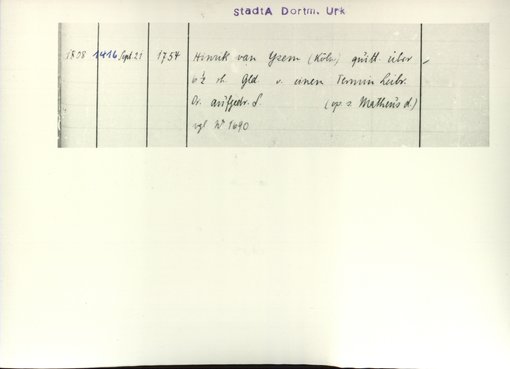 StadtA Dortm. Urk
1808 1416 Sept. 21 1754 Hinrik van Ysem (Köln) quitt. über
6½ rh. Gld v. einen Termin Leibr.
Or. aufgedr. S. (op. s. Matheus d.)
vgl N° 1690